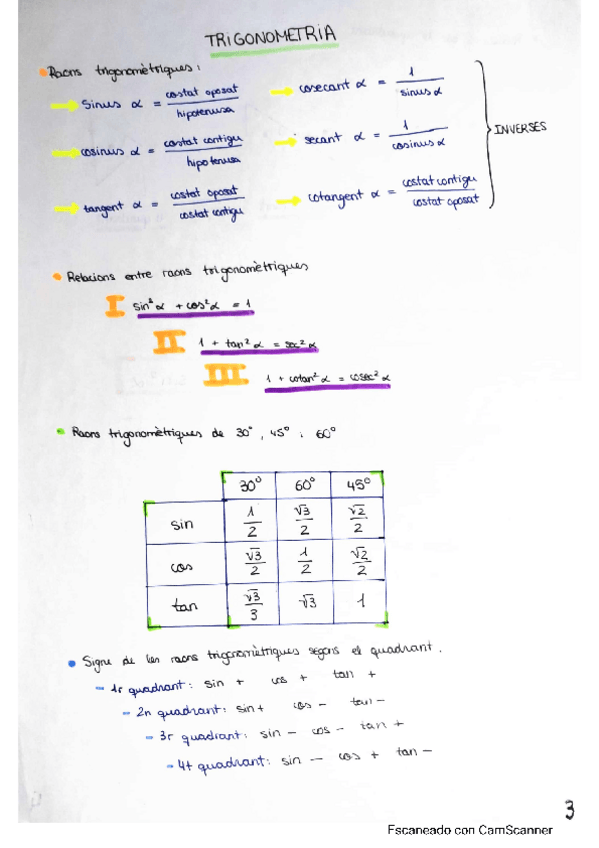 TRIGONOMETRIA
Raons trigonomètriques:
Sinus α = costat oposat / hipotenusa
cosecant α = 1 / sinus α
cosinus α = costat contigu / hipotenusa
secant α = 1 / cosinus α
INVERSES
tangent α = costat oposat / costat contigu
cotangent α = costat contigu / costat oposat
Relacions entre raons trigonomètriques
I sin²α + cos²α = 1
II 1 + tan²α = sec²α
III 1 + cotan²α = cosec²α
Raons trigonomètriques de 30°, 45° i 60°
30° 60° 45°
sin 1/2 √3/2 √2/2
cos √3/2 1/2 √2/2
tan √3/3 √3 1
Signe de les raons trigonomètriques segons el quadrant.
- 1r quadrant: sin + cos + tan +
- 2n quadrant: sin + cos - tan -
- 3r quadrant: sin - cos - tan +
- 4t quadrant: sin - cos + tan -
3
Escaneado con CamScanner